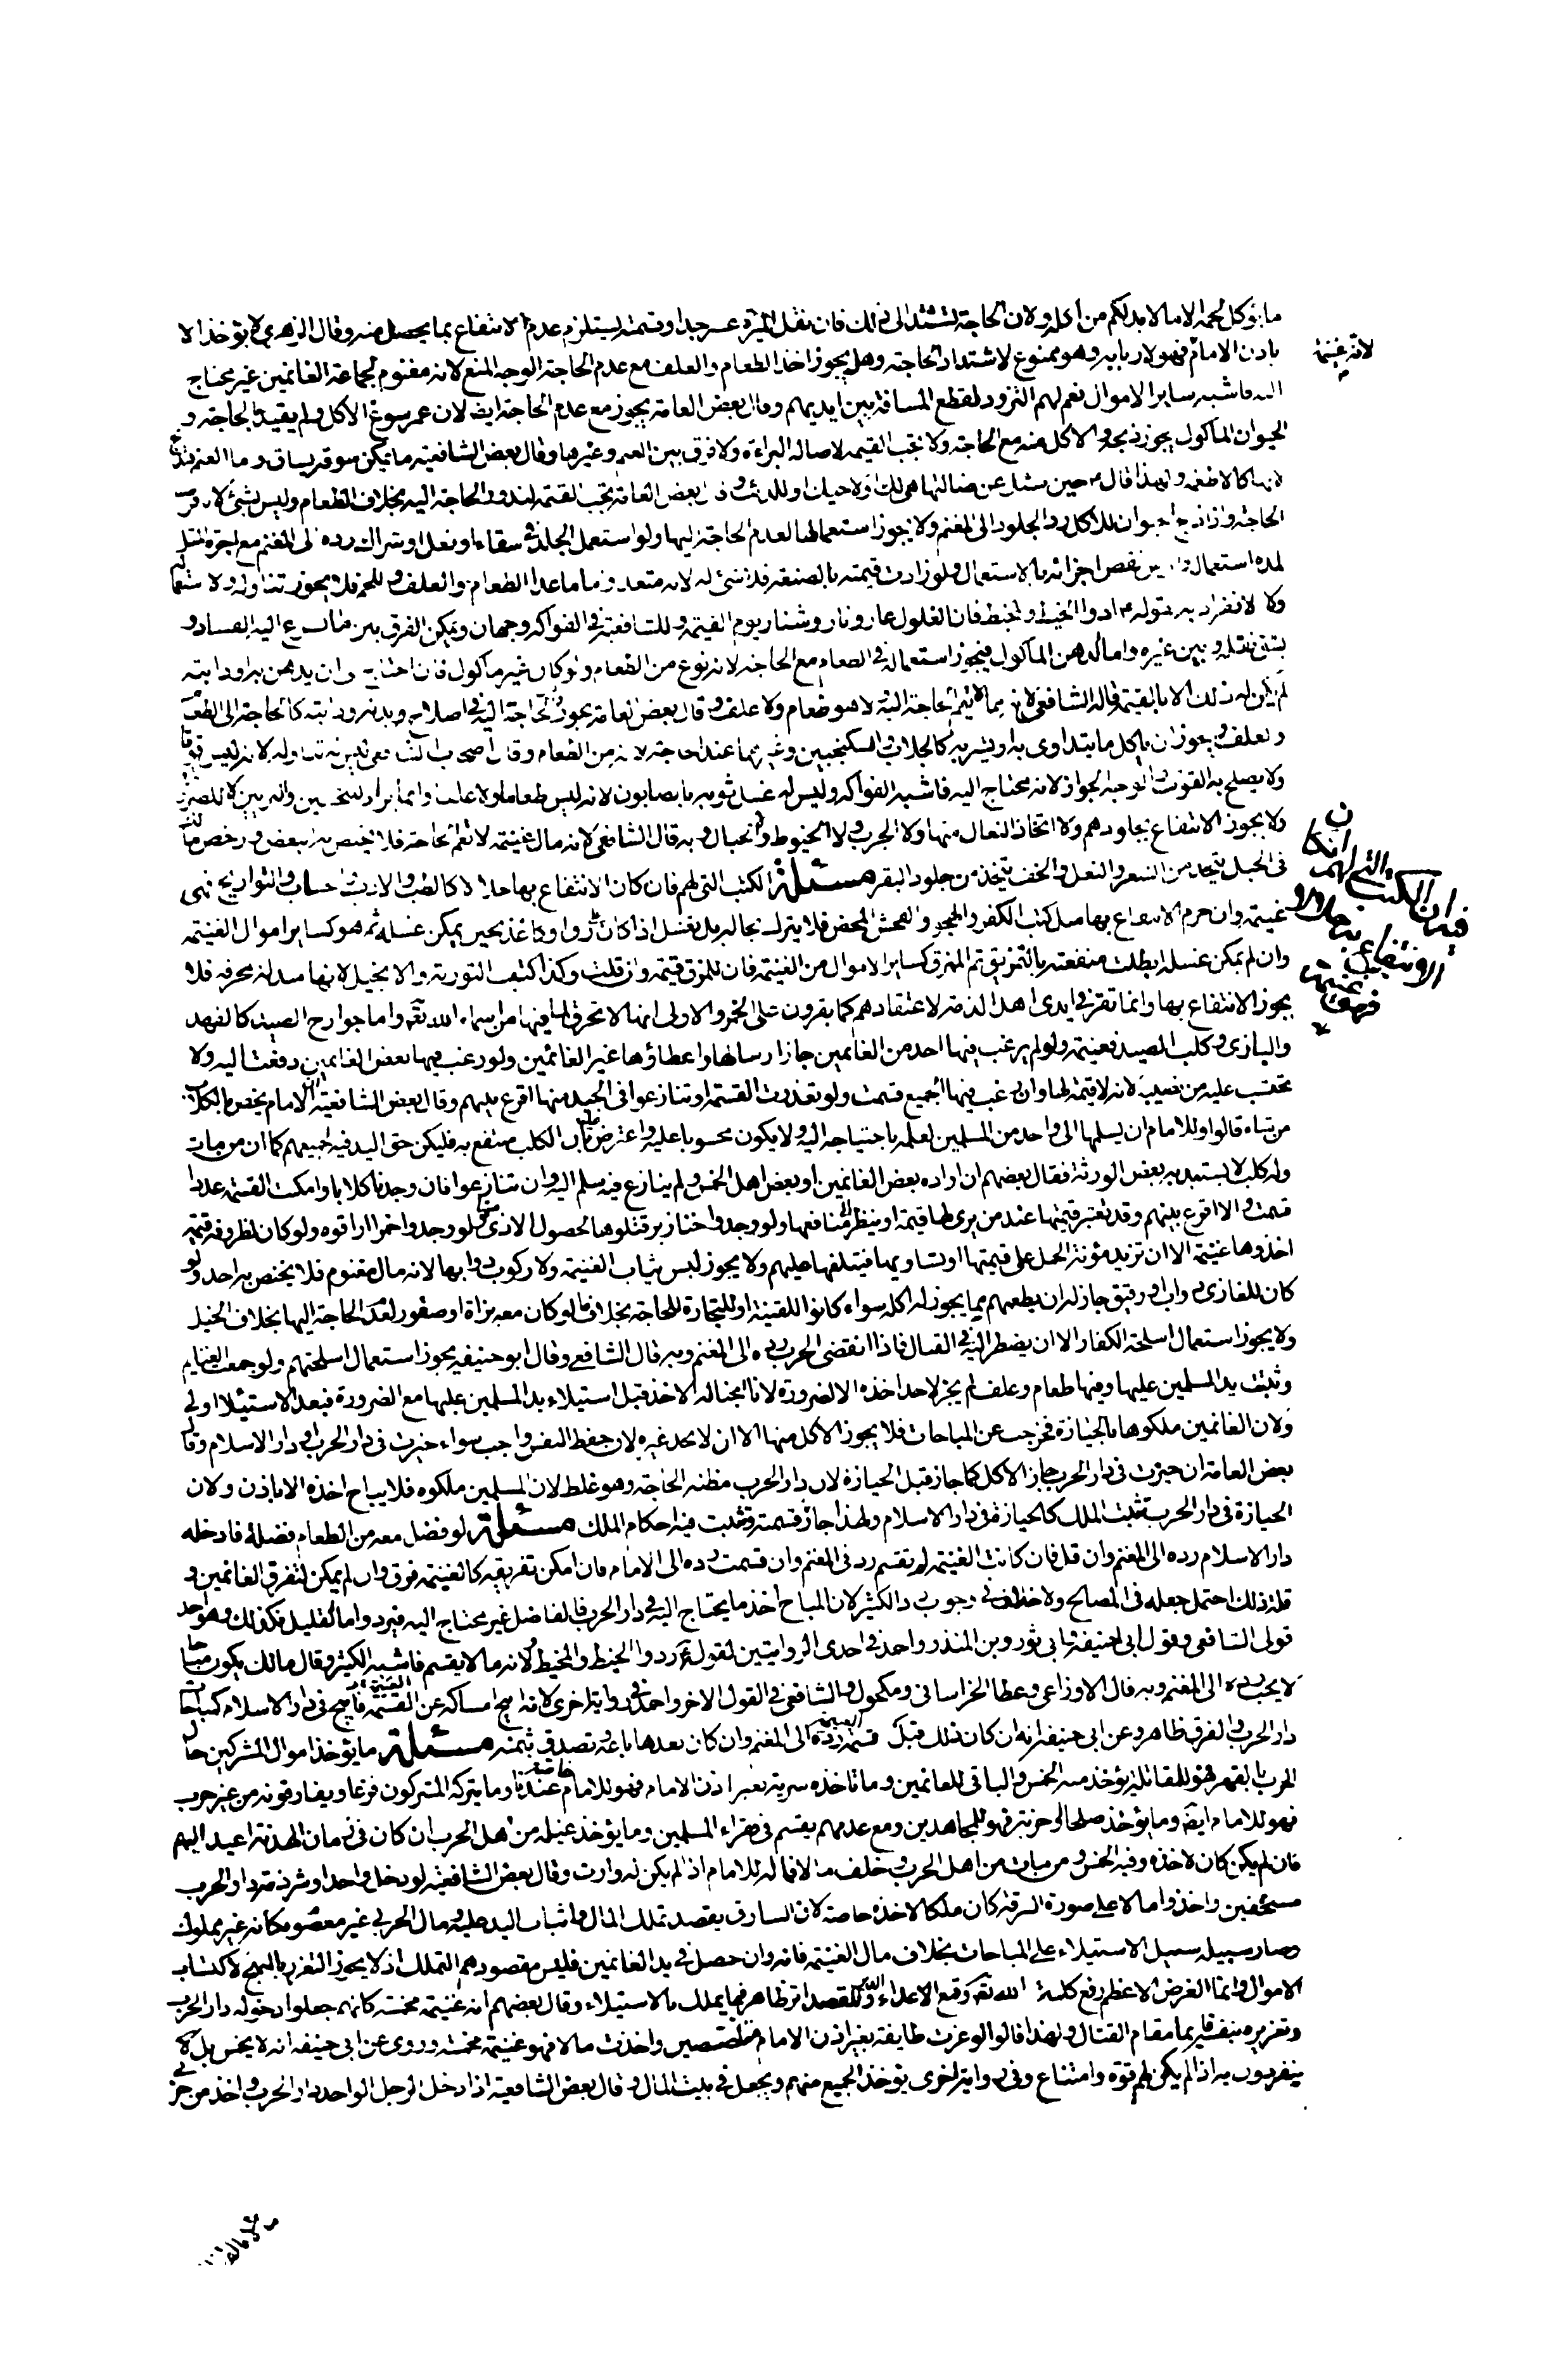 ما يؤكل لحمه الا ما لا بد لكم من اكله ولان الحاجة تشتد الى ذلك فان نقل الميرة عسر جدا وقسمته يستلزم عدم الانتفاع بما يحصل منه وقال الزهري لا يؤخذ الا
باذن الامام فهو لاربابه وهو ممنوع لاشتداد الحاجة وهل يجوز اخذ الطعام والعلف مع عدم الحاجة الوجه المنع لانه مغنوم لجماعة الغانمين غير محتاج
اليه فاشبه ساير الاموال نعم لهم التزود لقطع المسافة بين ايديهم وقال بعض العامة يجوز مع عدم الحاجة ايضا لان عمر سوغ الاكل ولم يقيد بالحاجة و
الحيوان المأكول يجوز ذبحه والاكل منه مع الحاجة ولا تجب القيمة لاصالة البراءة ولا فرق بين الغنم وغيرها وقال بعض الشافعية ما يمكن سوقه يساق واما الغنم
لانها كالاطعمة ولهذا قال حين سئل عن ضالتها هي لك او لاخيك او للذئب و بعض العامة تجب القيمة لندور الحاجة اليه بخلاف الطعام وليس بشئ
الحاجة واذا ذبح الحيوان للاكل رد الجلود الى المغنم ولا يجوز استعمالها لعدم الحاجة اليها ولو استعمل الجلد في سقاء او نعل او شراك رده الى المغنم مع اجرة المثل
لمدة استعماله نقص اجزائه بالاستعمال ولو زادت قيمته بالصنعة فلا شئ له لانه متعد واما ما عدا الطعام والعلف واللحم فلا يجوز تناوله ولا استعماله
ولا الانفراد به لقوله ادوا الخيط والمخيط فان الغلول عار ونار وشنار يوم القيمة وللشافعية في الفواكه وجهان ويمكن الفرق بين ما يسرع اليه الفساد و
يشق نقله وبين غيره واما الدهن المأكول فيجوز استعماله في الطعام مع الحاجة لانه نوع من الطعام ولو كان غير مأكول فان احتاج ان يدهن به او دابته
لم يكن له ذلك الا بالقيمة قاله الشافعي لانه مما لا تعم الحاجة اليه ولا هو طعام ولا علف وقال بعض العامة يجوز لان الحاجة اليه في اصلاح بدنه ودابته كالحاجة الى الطعام
والعلف ويجوز ان يأكل ما يتداوى به او يشربه كالجلاب والسكنجبين وغيرهما عند الحاجة لانه من الطعام وقال اصحاب الشافعي ليس له تناوله لانه ليس قوتا
ولا يصلح به القوت والوجه الجواز لانه محتاج اليه فاشبه الفواكه وليس له غسل ثوبه بالصابون لانه ليس طعاما ولا علفا وانما يراد للتحسين والتزيين لا للضرورة
ولا يجوز الانتفاع بجلودهم ولا اتخاذ النعال منها ولا الجرب ولا الخيوط والحبال وبه قال الشافعي لانه مال غنيمة لا تعم الحاجة فلا يختص به البعض ورخص مالك
في الحبل يتخذ من الشعر والنعل والخف يتخذ من جلود البقر مسئلة الكتب التي لهم فان كان الانتفاع بها حلالا كالطب والادب والحساب والتواريخ فهي
غنيمة وان حرم الانتفاع بها مثل كتب الكفر والهجو والفحش المحض فلا يترك بحاله بل يغسل اذا كان على رق او كاغذ بحيث يمكن غسله ثم هو كساير اموال الغنيمة
وان لم يمكن غسله ابطلت منفعته بالتمزيق ثم الممزق كساير الاموال من الغنيمة فان للممزق قيمة وان قلت وكذا كتب التورية والانجيل لانها مبدلة محرفة فلا
يجوز الانتفاع بها وانما تقر في ايدى اهل الذمة لاعتقادهم كما يقرون على الخمر والاولى انها لا تحرق لما فيها من اسماء الله تعالى واما جوارح الصيد كالفهد
والبازى وكلب الصيد فغنيمة ولو لم يرغب فيها احد من الغانمين جاز ارسالها واعطاؤها غير الغانمين ولو رغب فيها بعض الغانمين دفعت اليه ولا
تحتسب عليه من نصيبه لانه لا قيمة لها وان رغب فيها الجميع قسمت ولو تعذرت القسمة او تنازعوا في الجيد منها اقرع بينهم وقال بعض الشافعية الامام يخص بالكلاب
من شاء قالوا وللامام ان يسلمها الى واحد من المسلمين لعلمه باحتياجه اليه ولا يكون محسوبا عليه واعترض بان الكلب منتفع به فليكن حق اليد فيه لجميعهم كما ان من مات
وله كلب لا يستبد به بعض الورثة فقال بعضهم ان اراده بعض الغانمين او بعض اهل الخمس ولم ينازع فيه سلم اليه وان تنازعوا فان وجدنا كلابا وامكنت القسمة عددا
قسمت والا اقرع بينهم وقد تعتبر قيمتها عند من يرى لها قيمة او ينظر الى منافعها ولو وجدوا خنازير قتلوها لحصول الاذى منها ولو وجدوا خمرا اراقوه ولو كان لظروفه قيمة
اخذوها غنيمة الا ان تزيد مؤنة الحمل على قيمتها او تساويها فيتلفها عليهم ولا يجوز لبس ثياب الغنيمة ولا ركوب دوابها لانه مال مغنوم فلا يختص به احد ولو
كان للغازى دواب او رقيق جاز له ان يطعمهم مما يجوز له اكله سواء كانوا للقنية او للتجارة للحاجة بخلاف ما لو كان معه بزاة او صقور لعدم الحاجة اليها بخلاف الخيل
ولا يجوز استعمال اسلحة الكفار الا ان يضطر اليه في القتال فاذا انقضى الحرب رده الى المغنم وبه قال الشافعي وقال ابو حنيفة يجوز استعمال اسلحتهم ولو جمعت الغنايم
وثبت يد المسلمين عليها وفيها طعام وعلف لم يجز لاحد اخذه الا لضرورة لانا ابحنا له الاخذ قبل استيلاء يد المسلمين عليها مع الضرورة فبعد الاستيلاء اولى
ولان الغانمين ملكوها بالحيازة فخرجت عن المباحات فلا يجوز الاكل منها الا ان لا يجد غيره لان حفظ النفس واجب سواء حيزت في دار الحرب او دار الاسلام وقال
بعض العامة ان حيزت في دار الحرب جاز الاكل كما جاز قبل الحيازة لان دار الحرب مظنة الحاجة وهو غلط لان المسلمين ملكوه فلا يباح اخذه الا باذن ولان
الحيازة في دار الحرب تثبت الملك كالحيازة في دار الاسلام ولهذا جاز قسمته وتثبت فيه احكام الملك مسئلة لو فضل معه من الطعام فضلة فادخله
دار الاسلام رده الى المغنم وان قل فان كانت الغنيمة لم تقسم رد في المغنم وان قسمت رده الى الامام فان امكن تفريقه كالغنيمة فرق وان لم يمكن لتفرق الغانمين و
قلة ذلك احتمل جعله في المصالح ولا خلاف في وجوب رد الكثير لان المباح اخذ ما يحتاج اليه في دار الحرب فالفاضل غير محتاج اليه فيرد واما القليل فكذلك وهو احد
قولى الشافعي وقول ابى حنيفة وابى ثور وبن المنذر واحمد في احدى الروايتين لقوله ردوا الخيط والمخيط لانه ما لا يقسم فاشبه الكثير وقال مالك يكون مباحا
لا يجب رده الى المغنم وبه قال الاوزاعي وعطا الخراساني ومكحول والشافعي في القول الاخر واحمد في رواية اخرى لانه ابيح امساكه عن القسمة فابيح في دار الاسلام كمباحات
دار الحرب والفرق ظاهر وعن ابى حنيفة انه ان كان ذلك قبل قسمة الغنيمة رده الى المغنم وان كان بعدها باعه وتصدق بثمنه مسئلة ما يؤخذ اموال المشركين حال
الحرب بالقهر فهو للمقاتلة يؤخذ منه الخمس والباقي للغانمين وما تاخذه سرية بغير اذن الامام فهو للامام خاصة عندنا وما يتركه المشركون فزعا ويفارقونه من غير حرب
فهو للامام ايضا وما يؤخذ صلحا او جزية فهو للمجاهدين ومع عدمهم يقسم في فقراء المسلمين وما يؤخذ غيلة من اهل الحرب ان كان في زمان الهدنة اعيد اليهم
فان لم يكن كان لاخذه وفيه الخمس ومن مات من اهل الحرب وخلف مالا فماله للامام اذا لم يكن له وارث وقال بعض الشافعية لو دخل واحد او شرذمة دار الحرب
مستخفين واخذوا مالا على صورة السرقة كان ملكا لاخذه خاصة لان السارق يقصد تملك المال واثبات اليد عليه ومال الحربي غير معصوم فكانه غير مملوك
وصار سبيله سبيل الاستيلاء على المباحات بخلاف مال الغنيمة فانه وان حصل في يد الغانمين فليس مقصودهم التملك اذ لا يجوز التغرير بالمهج لاكتساب
الاموال وانما الغرض الاعظم رفع كلمة الله تعالى وقمع الاعداء الله وللقصد اثر ظاهر فيما يملك بالاستيلاء وقال بعضهم انه غنيمة مخمسة كانهم جعلوا دخوله دار الحرب
وتغريره بنفسه قايما مقام القتال ولهذا قالوا لو غزت طايفة بغير اذن الامام متلصصين واخذت مالا فهو غنيمة مخمسة وروى عن ابى حنيفة انه لا يخمس بل
ينفردون به اذا لم يكن لهم قوة وامتناع وفي رواية اخرى يؤخذ الجميع منهم ويجعل في بيت المال وقال بعض الشافعية اذا دخل الرجل الواحد دار الحرب واخذ من حربى
لانه غنيمة